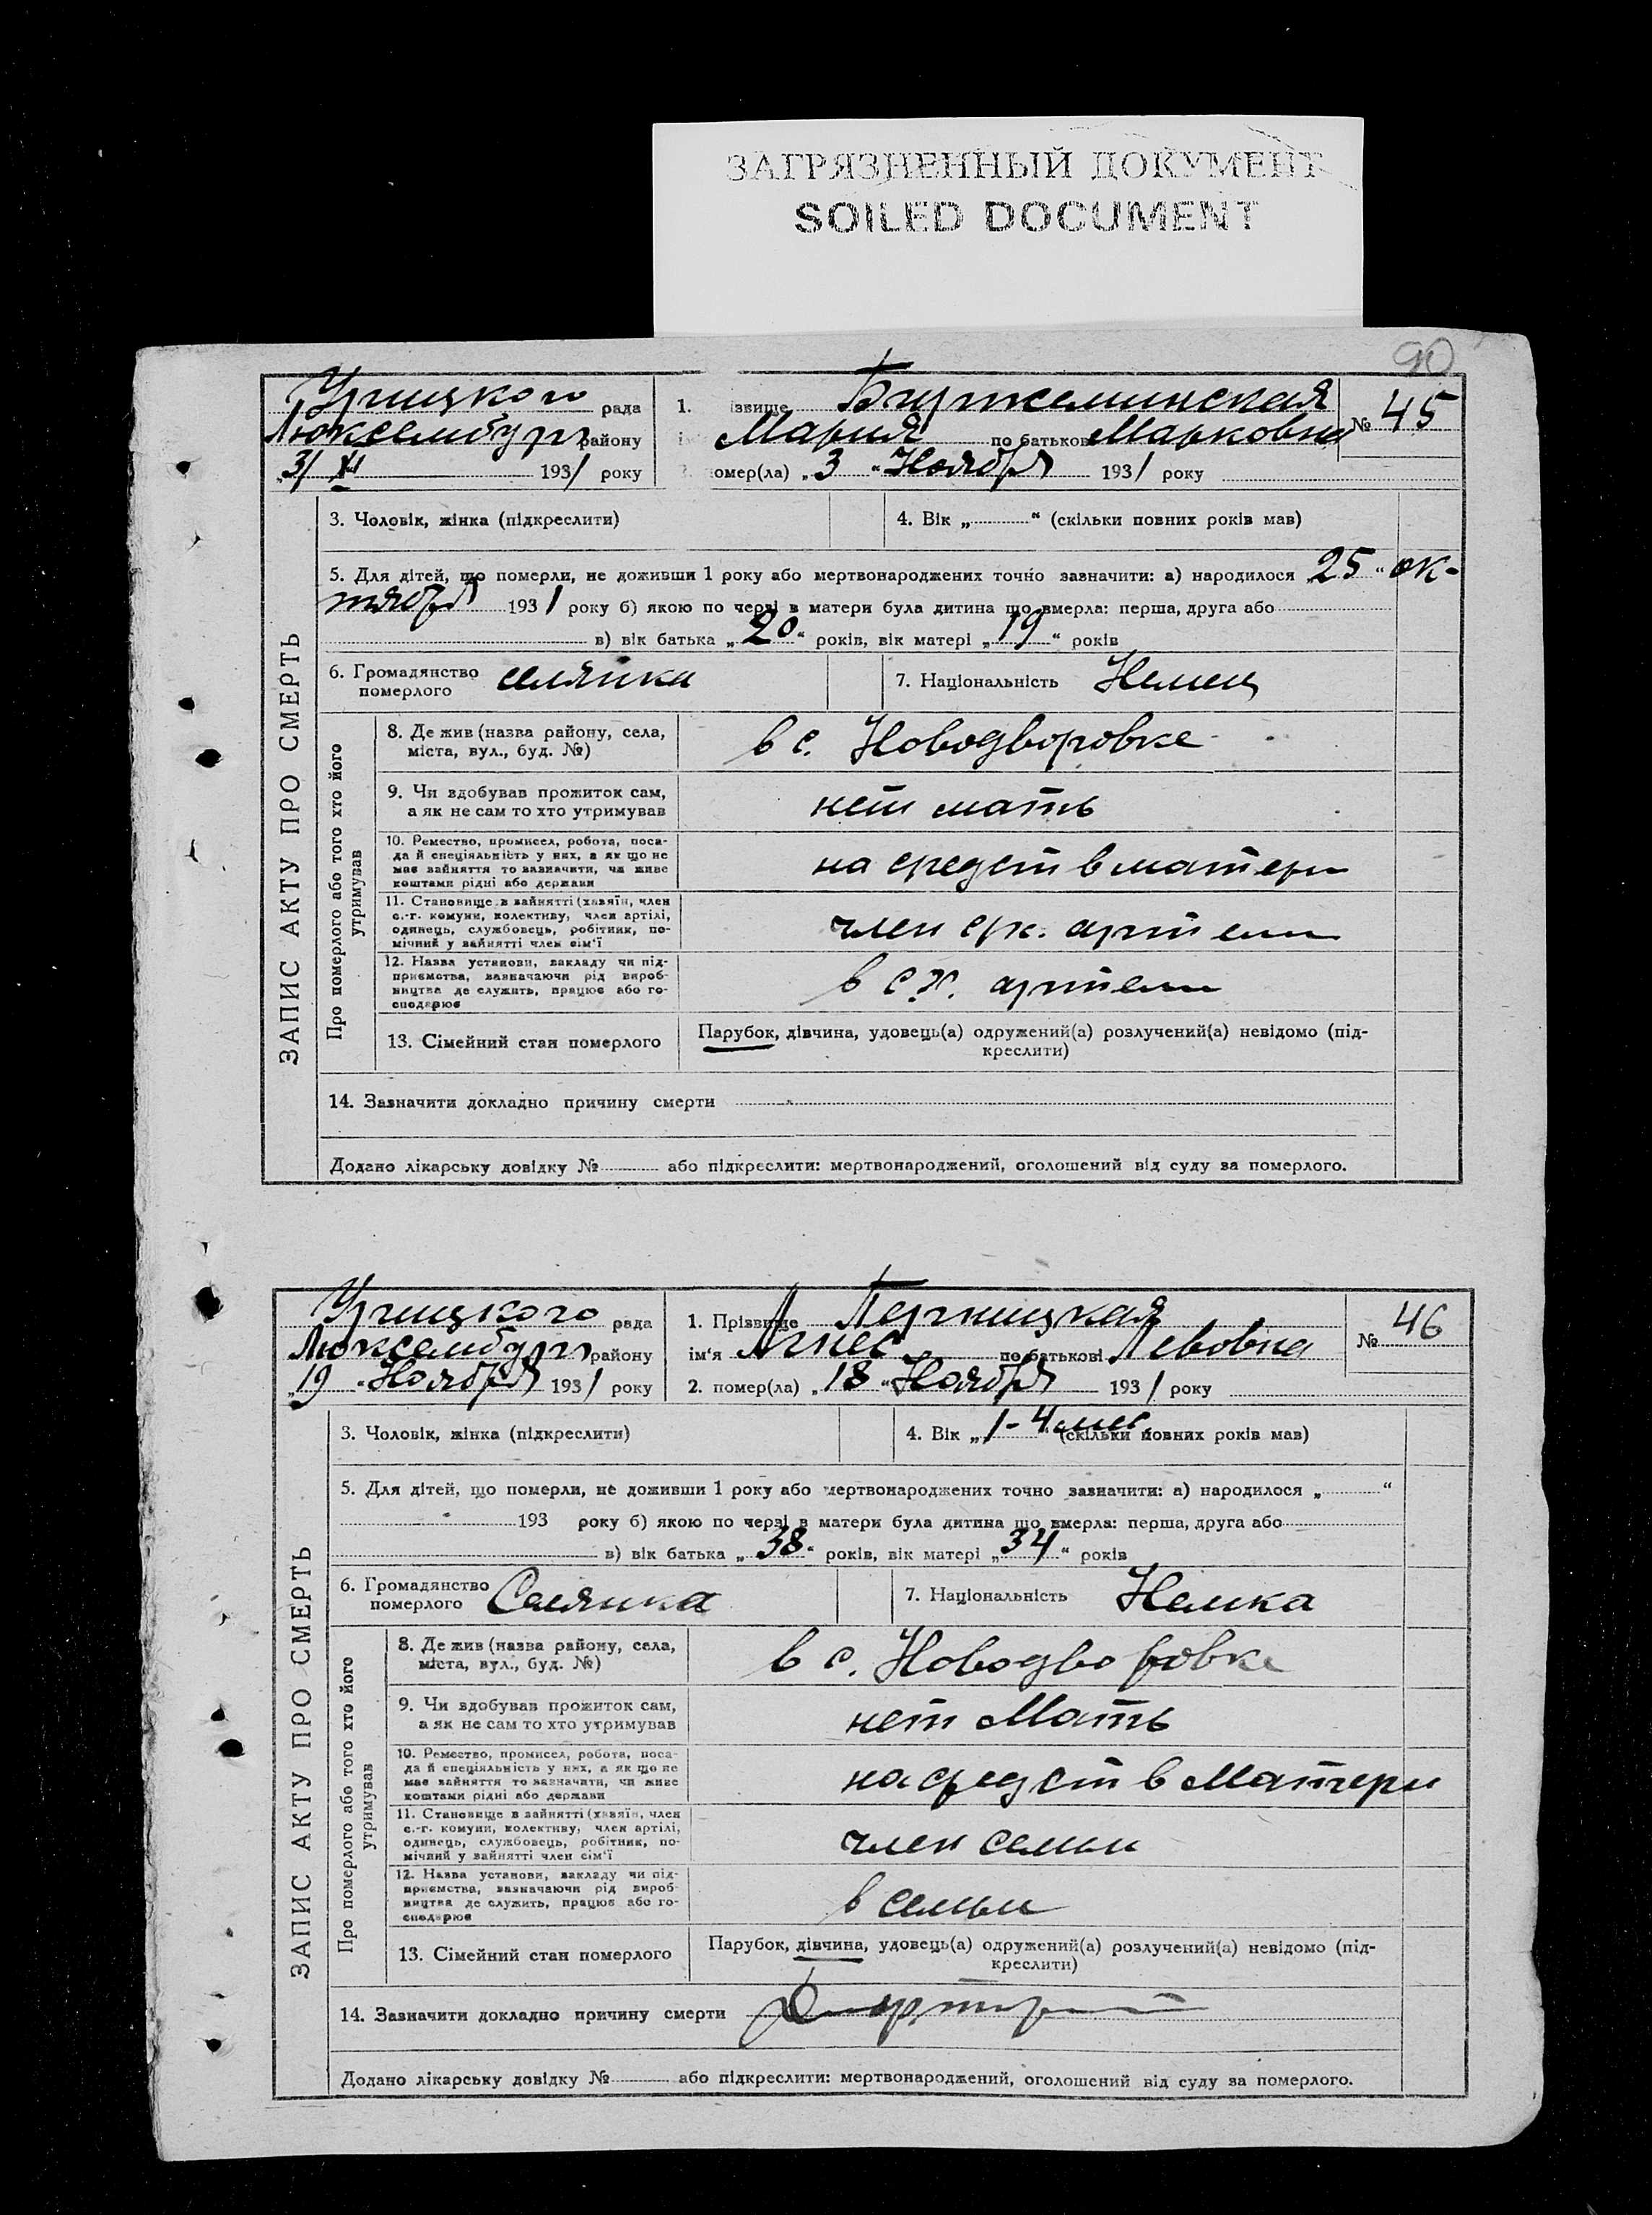 ЗАГРЯЗНЕННЫЙ ДОКУМЕНТ
SOILED DOCUMENT
90
Урицкого рада
Люксембург району
"3/ XI 1931 року
1. ізвище Буржеминская
Мария по батькові Марковна
омер(ла) „3 " Ноября 1931 року
№ 45
ЗАПИС АКТУ ПРО СМЕРТЬ
3. Чоловік, жінка (підкреслити)
4. Вік „ " (скільки повних років мав)
5. Для дітей, що померли, не доживши 1 року або мертвонароджених точно зазначити: а) народилося „25 " ок-
тября 1931 року б) якою по черзі в матери була дитина що вмерла: перша, друга або
в) вік батька „20" років, вік матері „19" років
6. Громадянство
померлого селянка
7. Національність Немец
Про померлого або того хто його
утримував
8. Де жив (назва району, села,
міста, вул., буд. №)
в с. Новодворовке
9. Чи здобував прожиток сам,
а як не сам то хто утримував
нет мать
10. Ремество, промисел, робота, поса-
да й спеціяльність у них, а як що не
має зайняття то зазначити, чи живе
коштами рідні або держави
на средств матери
11. Становище в зайнятті (хазяїн, член
с.-г. комуни, колективу, член артілі,
одинець, службовець, робітник, по-
мічний у зайнятті член сім'ї
член срх. артели
12. Назва установи, закладу чи під-
приємства, зазначаючи рід вироб-
ництва де служить, працює або го-
сподарює
в с.х. артели
13. Сімейний стан померлого
Парубок, дівчина, удовець(а) одружений(а) розлучений(а) невідомо (під-
креслити)
14. Зазначити докладно причину смерти
Додано лікарську довідку № або підкреслити: мертвонароджений, оголошений від суду за померлого.
Урицкого рада
Люксембург району
„19 " Ноября 1931 року
1. Прізвище Перницкая
ім'я Агнес по батькові Левовна
2. помер(ла) „18 " Ноября 1931 року
№ 46
ЗАПИС АКТУ ПРО СМЕРТЬ
3. Чоловік, жінка (підкреслити)
4. Вік „1-4 мес " (скільки повних років мав)
5. Для дітей, що померли, не доживши 1 року або мертвонароджених точно зазначити: а) народилося „ "
193 року б) якою по черзі в матери була дитина що вмерла: перша, друга або
в) вік батька „38" років, вік матері „34" років
6. Громадянство
померлого Селянка
7. Національність Немка
Про померлого або того хто його
утримував
8. Де жив (назва району, села,
міста, вул., буд. №)
в с. Новодворовке
9. Чи здобував прожиток сам,
а як не сам то хто утримував
нет Мать
10. Ремество, промисел, робота, поса-
да й спеціяльність у них, а як що не
має зайняття то зазначити, чи живе
коштами рідні або держави
на средств Матери
11. Становище в зайнятті (хазяїн, член
с.-г. комуни, колективу, член артілі,
одинець, службовець, робітник, по-
мічний у зайнятті член сім'ї
член семьи
12. Назва установи, закладу чи під-
приємства, зазначаючи рід вироб-
ництва де служить, працює або го-
сподарює
в семьи
13. Сімейний стан померлого
Парубок, дівчина, удовець(а) одружений(а) розлучений(а) невідомо (під-
креслити)
14. Зазначити докладно причину смерти
Додано лікарську довідку № або підкреслити: мертвонароджений, оголошений від суду за померлого.